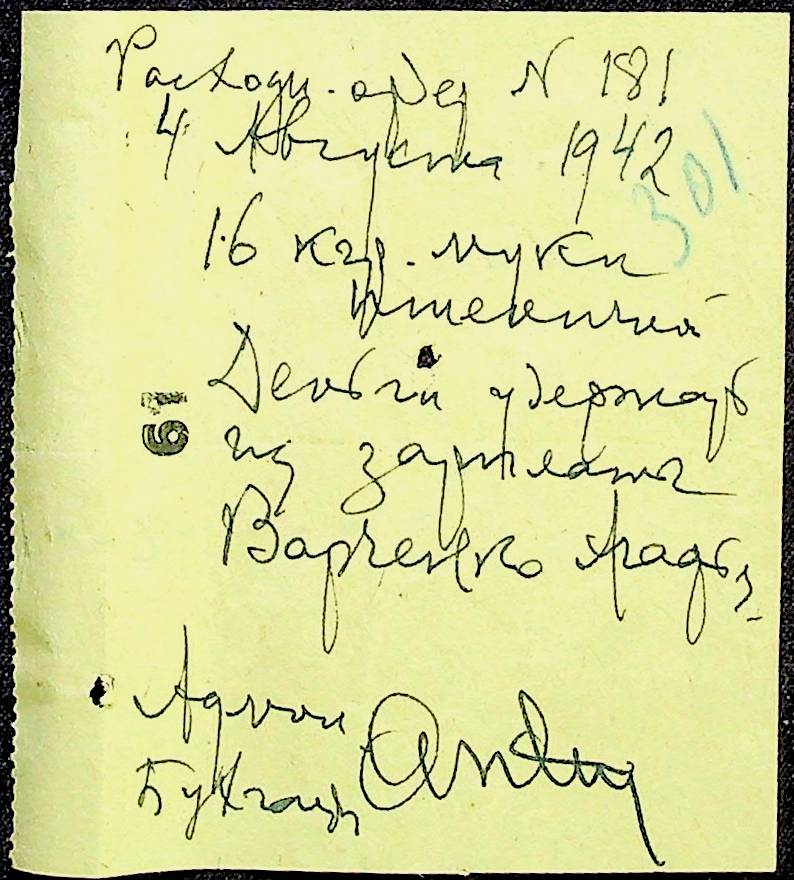 Расходн. ордер N 181
4 Августа 1942
301
16 кгр. муки
пшеничной
Деньги удержать
из зарплаты
61
Варченко
Админ
Бухгалтер